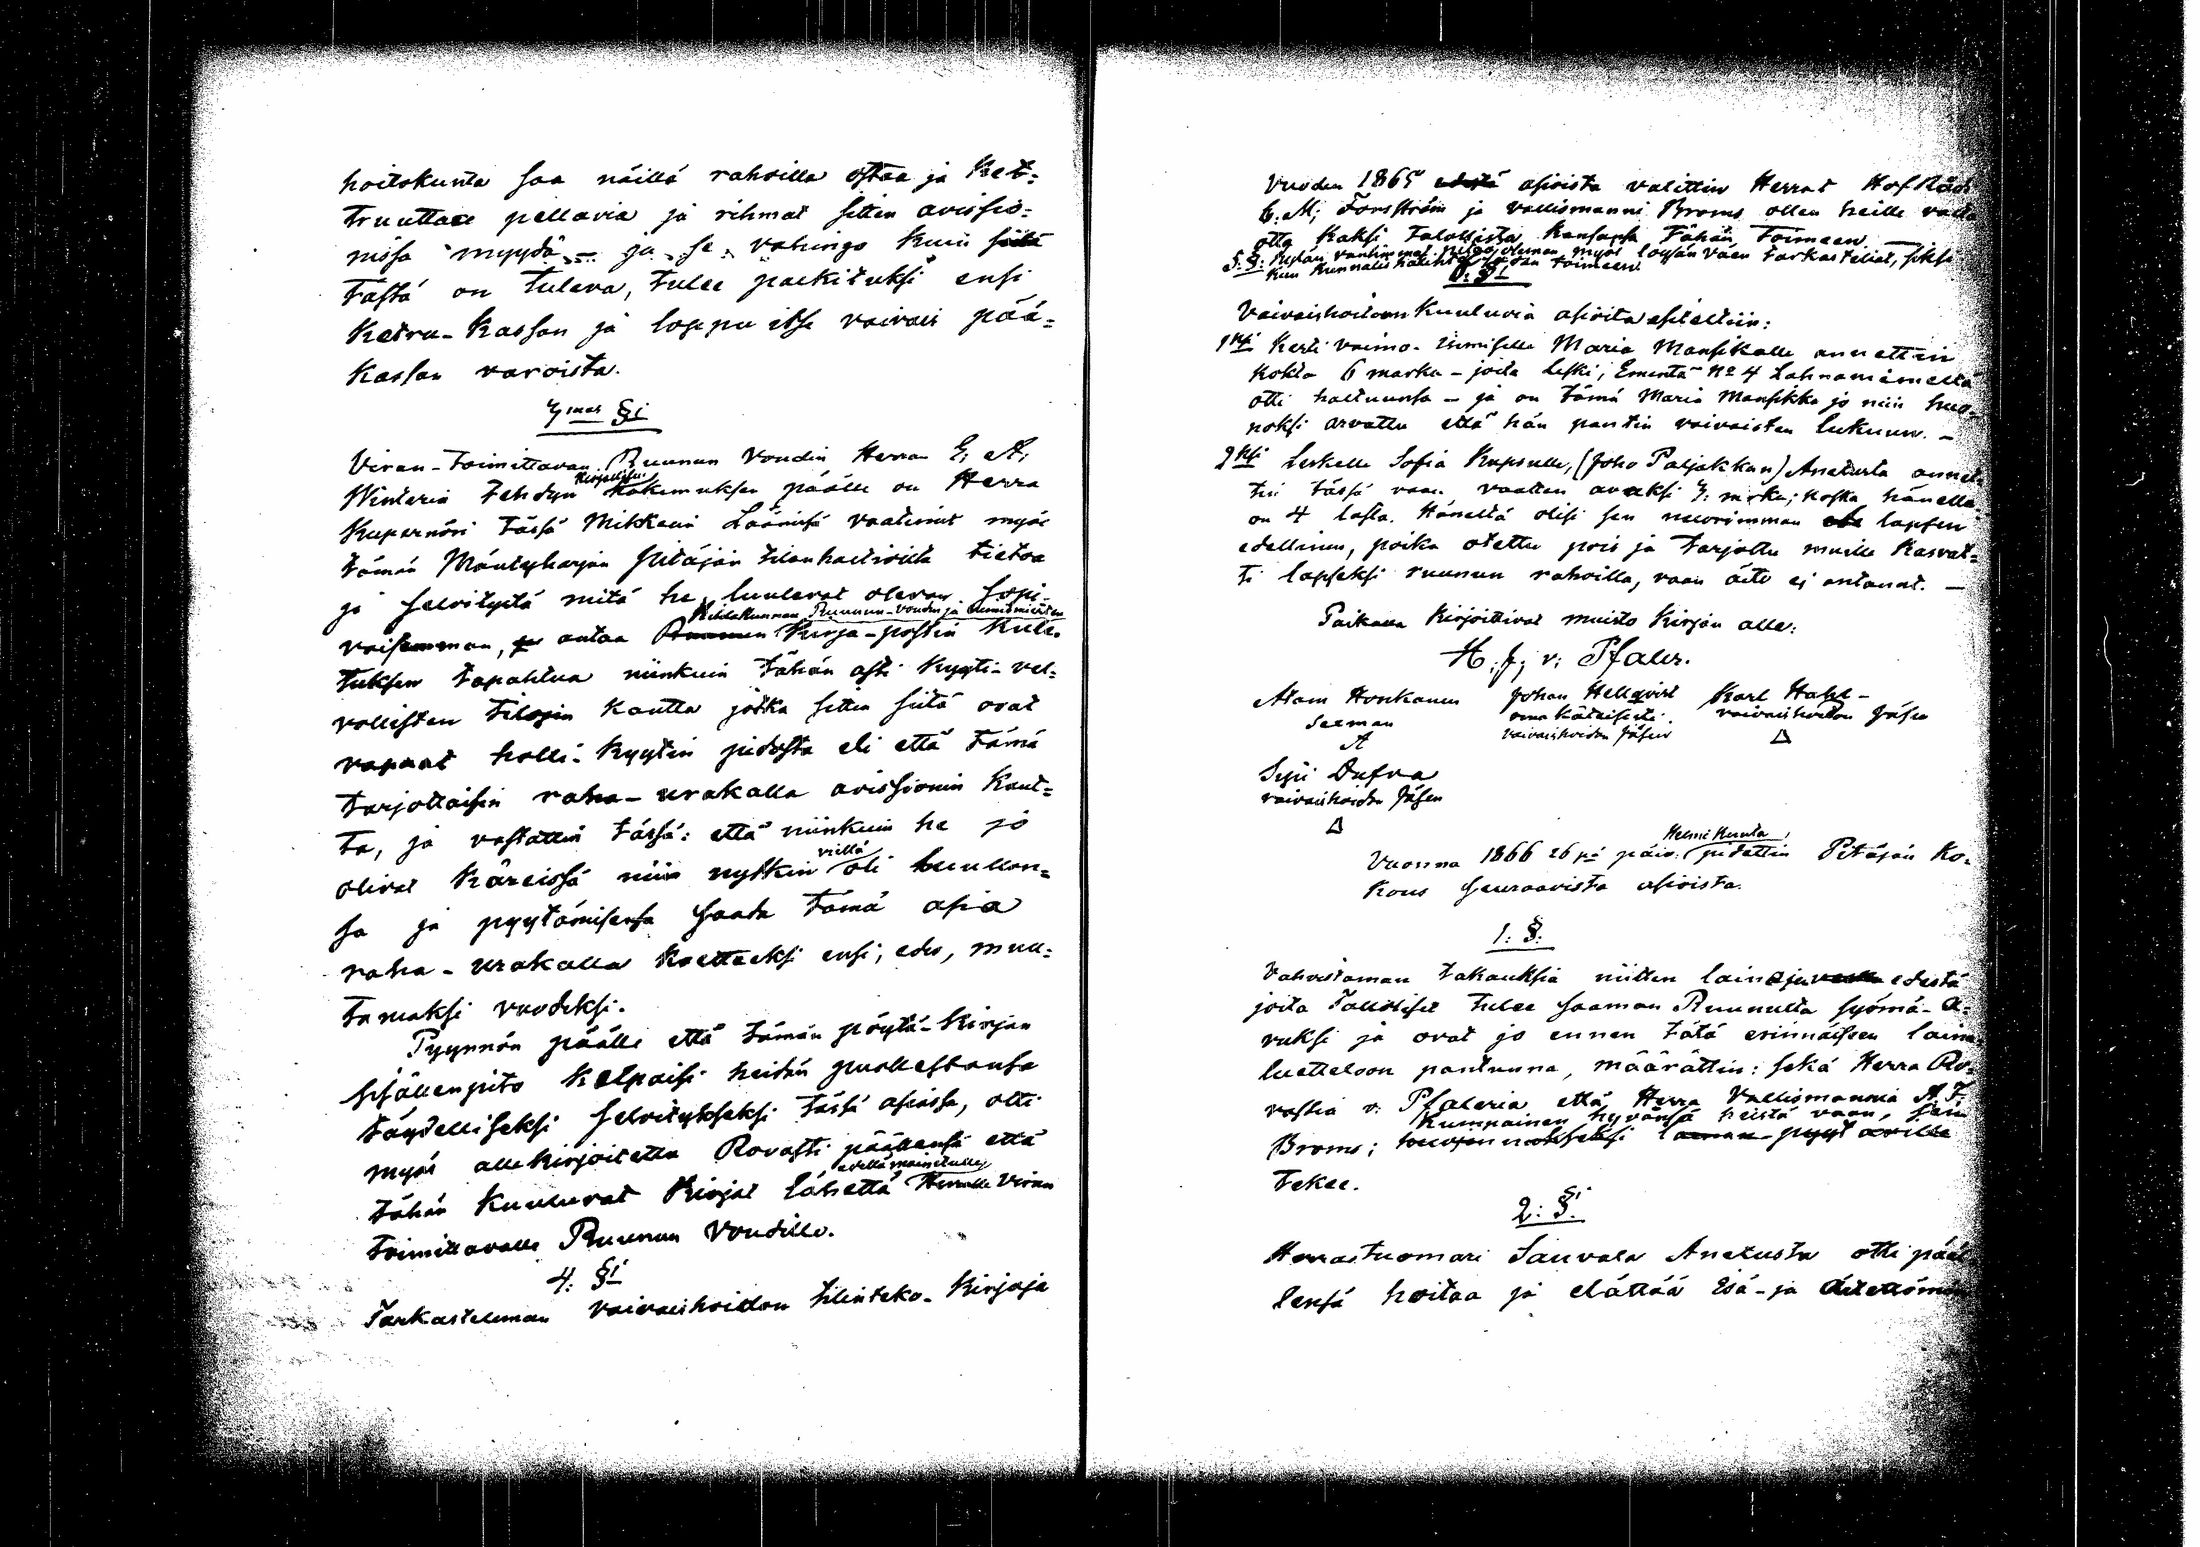 hoitokunta saa näillä rahoilla ostaa ja Ket=
truuttaa pellavia ja rihmat sitten avissio=
nissa myydä – ja se vahingo kuin siitä
tästä on tuleva, tulee paikituksi ensi
Ketru-Kassan ja loppu itse vaivais pää=
kassan varoista.
3mas §i
Viran-toimittavan Ruunun Voudin Herran E; A;
Kirjallisen
Winterin tehdyn hakemuksen päälle on Herra
Kupernöri tässä Mikkein Läänissä vaatinut myös
tämän Mäntyharjun Pitäjän tilanhaltioilta tietoa
ja selvitystä mitä he luulevat olevan sopi-
Kihlakunnan Ruunun-voudin ja
vaisemman, antaa Ruunun Kirja-postin Kule-
tuksen tapahtua niinkuin tähän asti Kyyti-vel=
vollisten tilojen kautta jotka sitten siitä ovat
vapaat holli-kyytin pidosta eli että tämä
tarjottaisin raha-urakalla avissionin Kaut=
ta, ja vastattiin tässä: että niinkuin he jo
viellä
olivat Käreissä niin nytkin oli luullon=
sa ja pyytämisensä saada tämä asia
raha-urakalla koetteeksi ensi, edes, muu=
tamaksi vuodeksi.
Pyynnön päälle että tämän pöytä-Kirjan
sisällenpito kelpaisi heidän puollestansa
täydelliseksi selvitykseksi tässä asiassa, otti
myös allekirjoitettu Rovasti päällensä että
edellämainitulle
tähän kuuluvat Kirjat lähettä Herralle Viran
toimittavalle Ruunun Voudille.
4: §i
Tarkasteleman vaivaishoidon tilinteko-Kirjoja
Vuoden 1865 edestä asioista valittiin Herrat Hofråd
C. M; Forsström ja vallismanni Broms ollen heille valta
otta Kaksi talollista kanssansa tähän toimeen. –
5: §: Kylän vanhimmat pitää oleman myös loysän väen tarkasteliat, siksi
kuin Kunnallishallitus toimeen
6: §i
Vaivaishoitoon kuuluvia asioita esiteltiin:
1ksi Kerti vaimo-ihmiselle Maria Mansikalle annettiin
kohta 6 marka – joita leski, Emäntä No 4 Lahnaniemeltä
otti haltuunsa – ja on tämä Maria Mansikka jo niin huo=
noksi arvattu että hän pantiin vaivaisten lukuun. –
2ksi Leskelle Sofia Kupsulle, (Joho Paljakkan) Anatusta annet=
tiin tässä vaan vaatten avuksi 3: marka; koska hänellä
on 4 lasta. Häneltä olisi sen nuorimman lapsen
edellinen, poika otettu pois ja tarjottu muille Kasvat=
ti lapseksi ruunun rahoilla, vaan äiti ej antanut. –
Paikalla Kirjoittivat muisto Kirjan alle:
H: J; v: Pfaler.
Atam Honkanen
Seeman
A
Johan Hellqvist
oma kätteisesti.
vaivaishoidon Jäsen
Karl Hahl –
vaivaishoidon Jäsen
Δ
Syii Dufva
vaivaishoidon Jäsen
Δ
Helmi Kuuta
Vuonna 1866 26 pä päiv: pidettiin Pitäjän Ko=
kous seuraavista asioista.
1: §:
Vahvistaman takauksia niitten lainojen edestä
joita Talolliset tulee saaman Ruunulta syömä-A=
vuksi ja ovat jo ennen tätä erinnäiseen laina
luetteloon pantunna, määrättiin: sekä Herra Ro=
vastia v: Pfaleria että Herra Vallismannia A. F.
Kumpainen hyvänsä heistä vaan, sen
Broms;
tekee.
2: §i
Herrastuomari Sauvala Anatusta otti pääl
lensä hoitaa ja elättää Isä-ja Äitettömän